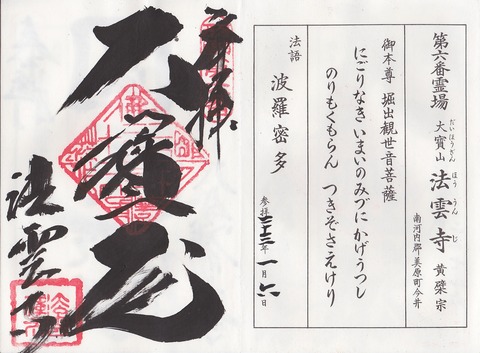 第六番霊場
大寶山 法雲寺 黄檗宗
だいほうざん ほううんじ
南河内郡美原町今井
御本尊 堀出観世音菩薩
にごりなき いまいのみづにかげうつし
のりもくもらん つきぞさえけり
法語 波羅密多
参拝二十三年一月六日
奉拝
法雲寺